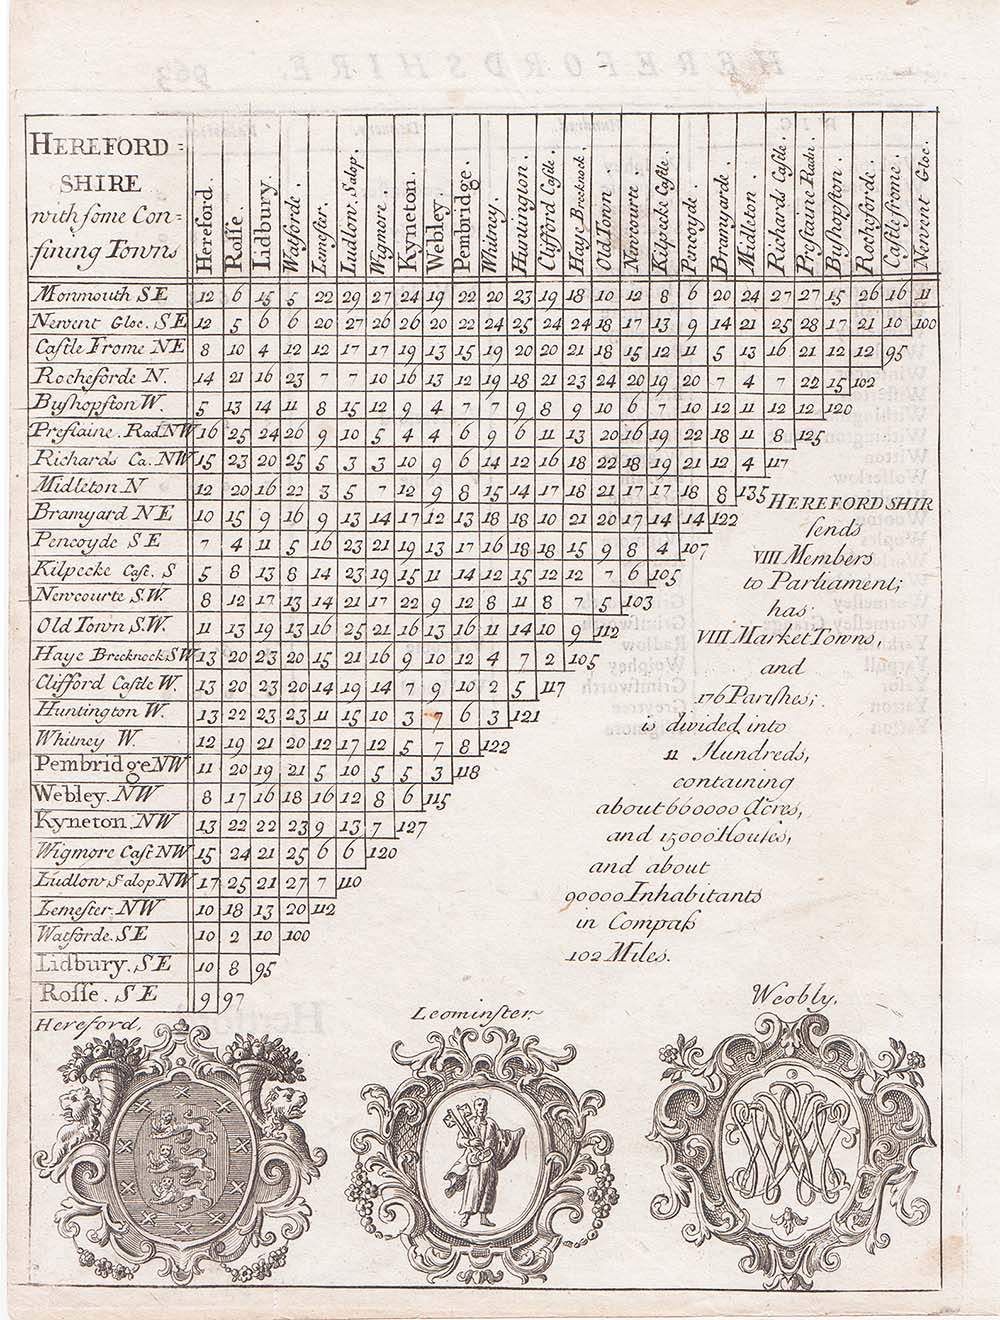 HEREFORD=
SHIRE
with ſome Con=
fining Towns
Hereford.
Roſſe.
Lidbury.
Watforde.
Lemſter.
Ludlow. Salop.
Wigmore.
Kyneton.
Webley.
Pembridge.
Whitney.
Huntington.
Clifford Caſtle.
Haye Brecknock.
Old Town.
Newcourt.
Kilpecke Caſtle.
Pencoyde.
Bramyarde
Midleton.
Richards Caſtle
Preſtaine Radn.
Buſhopſton.
Rocheforde.
Caſtlefrome.
Newent Gloc.
Monmouth SE 12 6 15 5 22 29 27 24 19 22 20 23 19 18 10 12 8 6 20 24 27 27 15 26 16 11
Newent Gloc. SE 12 5 6 6 20 27 26 26 20 22 24 25 24 24 18 17 13 9 14 21 25 28 17 21 10 100
Caſtle Frome NE 8 10 4 12 12 17 17 19 13 15 19 20 20 21 18 15 12 11 5 13 16 21 12 12 95
Rocheforde N. 14 21 16 23 7 7 10 16 13 12 19 18 21 23 24 20 19 20 7 4 7 22 15 102
Buſhopſton W. 5 13 14 11 8 15 12 9 4 7 7 9 8 9 10 6 7 10 12 11 12 12 120
Preſtaine. Rad. NW 16 25 24 26 9 10 5 4 4 6 9 6 11 13 20 16 19 22 18 11 8 125
Richards Ca. NW 15 23 20 25 5 3 3 10 9 6 14 12 16 18 22 18 19 21 12 4 117
Midleton N 12 20 16 22 3 5 7 12 9 8 15 14 17 18 21 17 17 18 8 135
Bramyard NE 10 15 9 16 9 13 14 17 12 13 18 18 10 21 20 17 14 14 122
Pencoyde SE 7 4 11 5 16 23 21 19 13 17 16 18 18 15 9 8 4 107
Kilpecke Caſt. S 5 8 13 8 14 23 19 15 11 14 12 15 12 12 7 6 105
Newcourte S.W. 8 12 17 13 14 21 17 22 9 12 8 11 8 7 5 103
Old Town S.W. 11 13 19 13 16 25 21 16 13 16 11 14 10 9 112
Haye Brecknock SW 13 20 23 20 15 21 16 9 10 12 4 7 2 105
Clifford Caſtle W. 13 20 23 20 14 19 14 7 9 10 2 5 117
Huntington W. 13 22 23 23 11 15 10 3 7 6 3 121
Whitney W. 12 19 21 20 12 17 12 5 7 8 122
Pembridge NW 11 20 19 21 5 10 5 5 3 118
Webley. NW 8 17 16 18 16 12 8 6 115
Kyneton. NW 13 22 22 23 9 13 7 127
Wigmore Caſt NW 15 24 21 25 6 6 120
Ludlow Salop NW 17 25 21 27 7 110
Lemeſter. NW 10 18 13 20 112
Watforde. SE 10 2 10 100
Lidbury. SE 10 8 95
Roſſe. SE 9 97
HEREFORDSHIR
ſends
VIII Members
to Parliament;
has
VIII Market Towns,
and
176 Pariſhes;
is divided into
11 Hundreds,
containing
about 660000 Acres,
and 15000 Houſes,
and about
90000 Inhabitants
in Compaſs
102 Miles.
Hereford.
Leominſter
Weobly.